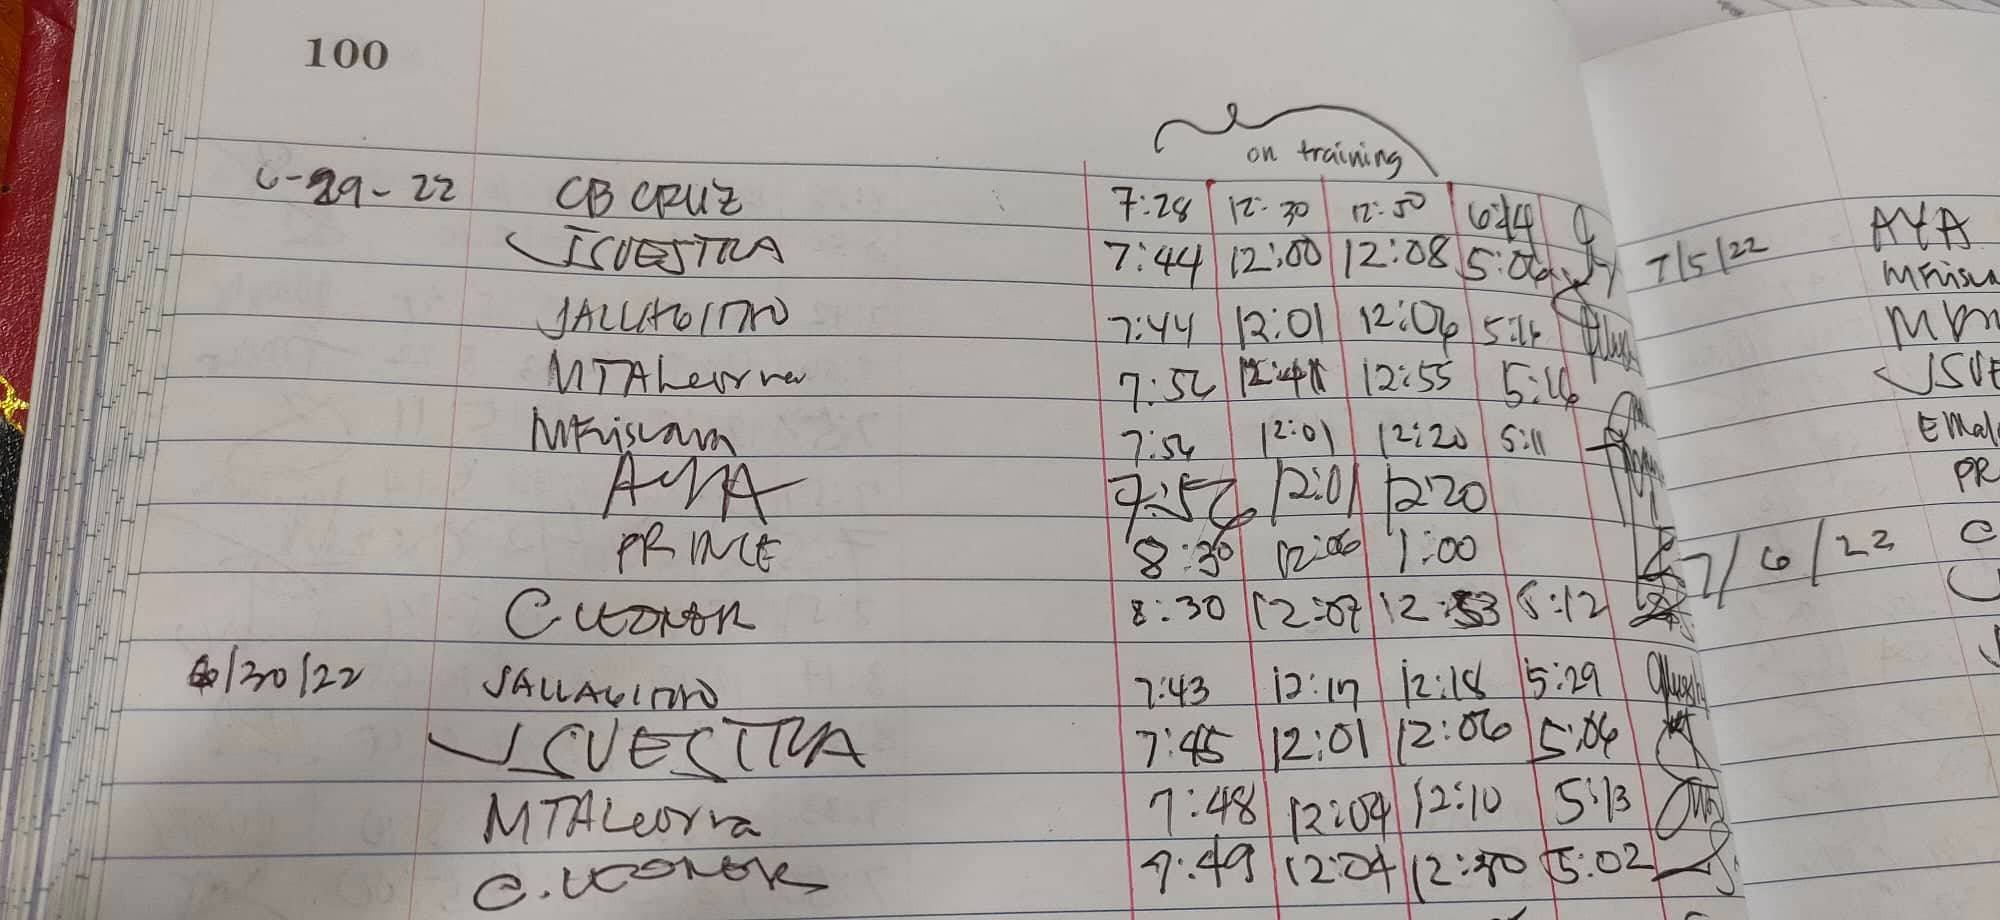 100
on training
6-29-22 CB CRUZ 7:28 12:30 12:50 6:14
JSVESTRA 7:44 12:00 12:08 5:06
JALLAGITNO 7:44 12:01 12:06 5:16
MTALeorna 7:52 12:41 12:55 5:16
MFriscara 7:56 12:01 12:20 5:11
AYA 7:56 12:01 12:20
PRINCE 8:30 12:06 1:00
C. 8:30 12:07 12:53 5:12
6/30/22 JALLAGITNO 7:43 12:17 12:18 5:29
JSVESTRA 7:45 12:01 12:06 5:06
MTALeorna 7:48 12:04 12:10 5:13
C. 7:49 12:04 12:30 5:02
7/5/22 AYA
MFrisca
JSVE
EMal
PR
7/6/22 C